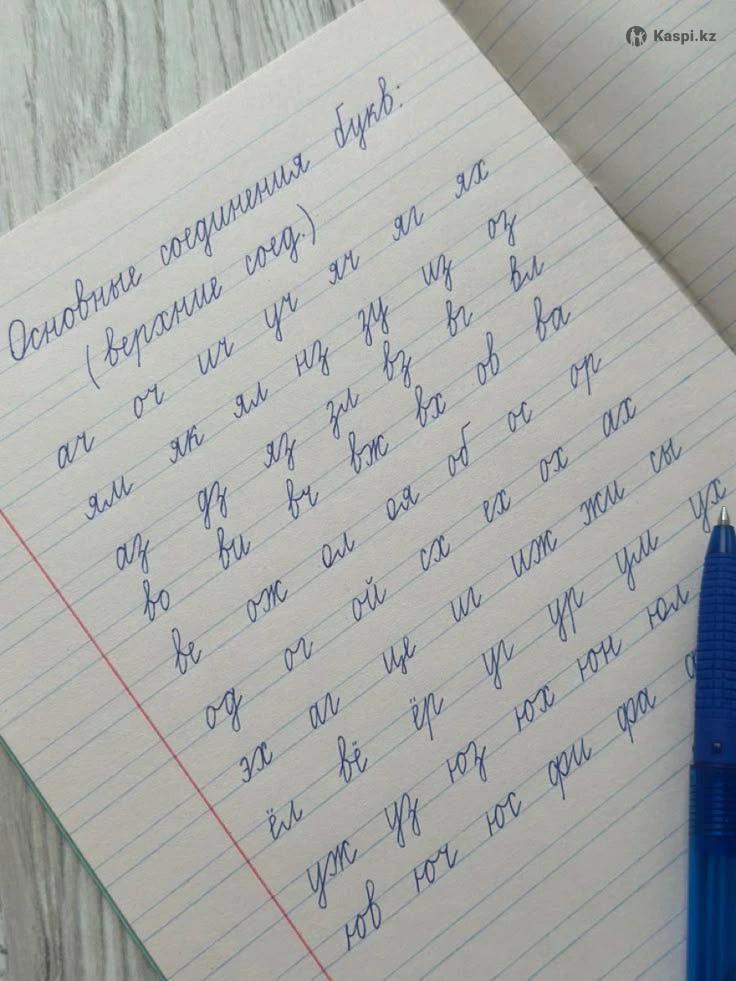 Kaspi.kz
Основные соединения букв:
(верхние соед.)
ач оч ич уч яч яг ях
ям як ял нз зу из оз
аз дз яз зл вз вг вл
во ви вч вж вх ов ва
ве ож ол оя об ос ор
од ог ой сх ех ох ах
эх аг це иг иж жи сы
ёл вё ёр уг ур ум ух
уж уз юз юх юн юл
юв юч юс фи фа